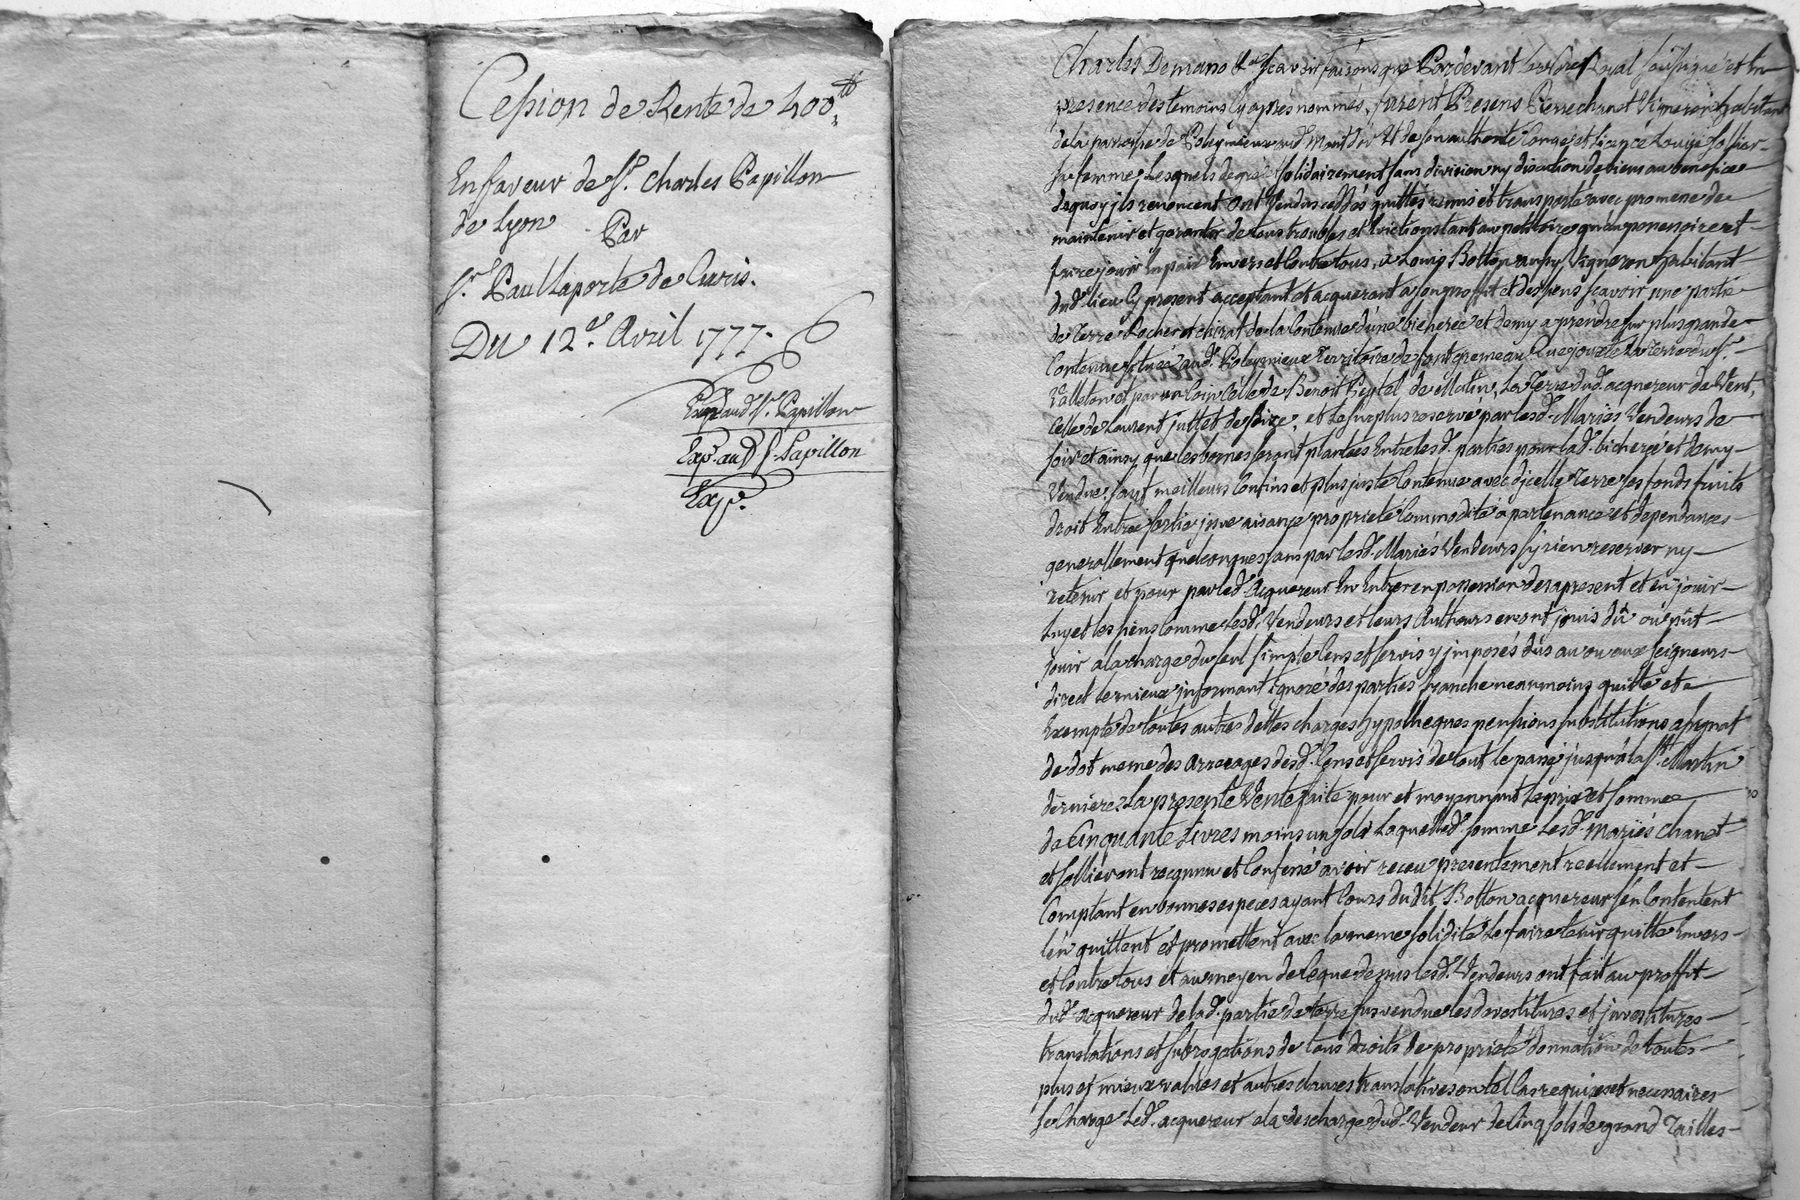 Cession de Rente de 400.tt
En faveur de Sr. Charles Papillon
de Lyon
Par
Sr. Paul Laporte de Curis.
Du 12e. Avril 1777.
Exp. aud. Sr. Papillon
Exp. aud. S. Papillon
Exp.
Charles Demano scavoir faisons que Pardevant Royal soussigné et En
presence des temoins Cy aprés nommés, furent Presens Pierre chanet Vigneron habitant
de la paroisse de Poleymieux au mont d'or Et de son authorité Congé et licence Louise sollier
sa femme, Lesquels de gré solidairement sans division ny discution de biens au benefice
dequoy ils renoncent ont Vendus ceddés quittés remis et transporté avec promesse de
maintenir et garantir de tous troubles et Evictions tant au petitoire qu'au possessoire et
faire jouir En paix Envers et Contre tous, a Louis Botton Vigneron habitant
dud. lieu Cy present acceptant et acquerant a son proffit et des siens scavoir une partie
de Terre Rocher et chirat de la Contenue d'une bicherée et demy a prendre sur plus grande
Contenue située aud. Poleymieux Territoire de La Terre du Sr.
Valleton et par un Coin Celle de Benoit de Matin, La Terre dud. acquereur de Vent,
Celle de Laurent juttet de Bize, et Le surplus reservé par lesd. Mariés Vendeurs de
soir et ainsy que les bornes seront plantées Entre lesd. parties pour lad. bicherée et demy
Vendue, sauf meilleurs Confins et plus juste Contenue avec d'jcelle Terre ses fonds fruits
droit Entrée sortie jssue aisance proprieté Commodité apartenance et dependances
generallement quelconques sans par lesd. Mariés Vendeurs s'y rien reserver ny
retenir et pour par led. Acquereur En Entrer en possession des a present et en jouir
Luy et les siens Comme Lesd. Vendeurs et leurs Autheurs en ont jouis dû ou pût
jouir a la charge du seul simple Cens et servis y jmposés dûs au ou aux seigneurs
direct le mieux jnformant ignoré des parties franche neanmoins quitte et
Exempte de toutes autres dettes charges hypotheques pensions substitutions assignat
de dot meme des Arrerages desd. Cens et servis de tout le passé jusqu'a la St. Martin
derniere La presente Vente faite pour et moyennant Le prix et somme
de Cinquante Livres moins un sols Laquelle d. somme Lesd. mariés chanet
et sollier ont reconnu et Confessé avoir receu presentement reellement et
Comptant en bonnes especes ayant Cours du dit Botton acquereur s'en Contentent
l'en quittent et promettent avec la meme solidité Le faire tenir quitte Envers
et Contre tous et au moyen de Ce que dessus lesd. Vendeurs ont fait au proffit
dud. acquereur de lad. partie de terre susvendue les devestitures et jnvestitures
translations et subrogations de tous droits de proprieté donnation de toutes
plus et mieux values et autres clauses translatives en tel Cas requises et necessaires
se Charge Led. acquereur a la descharge dud. Vendeur de Cinq sols de grand Tailles